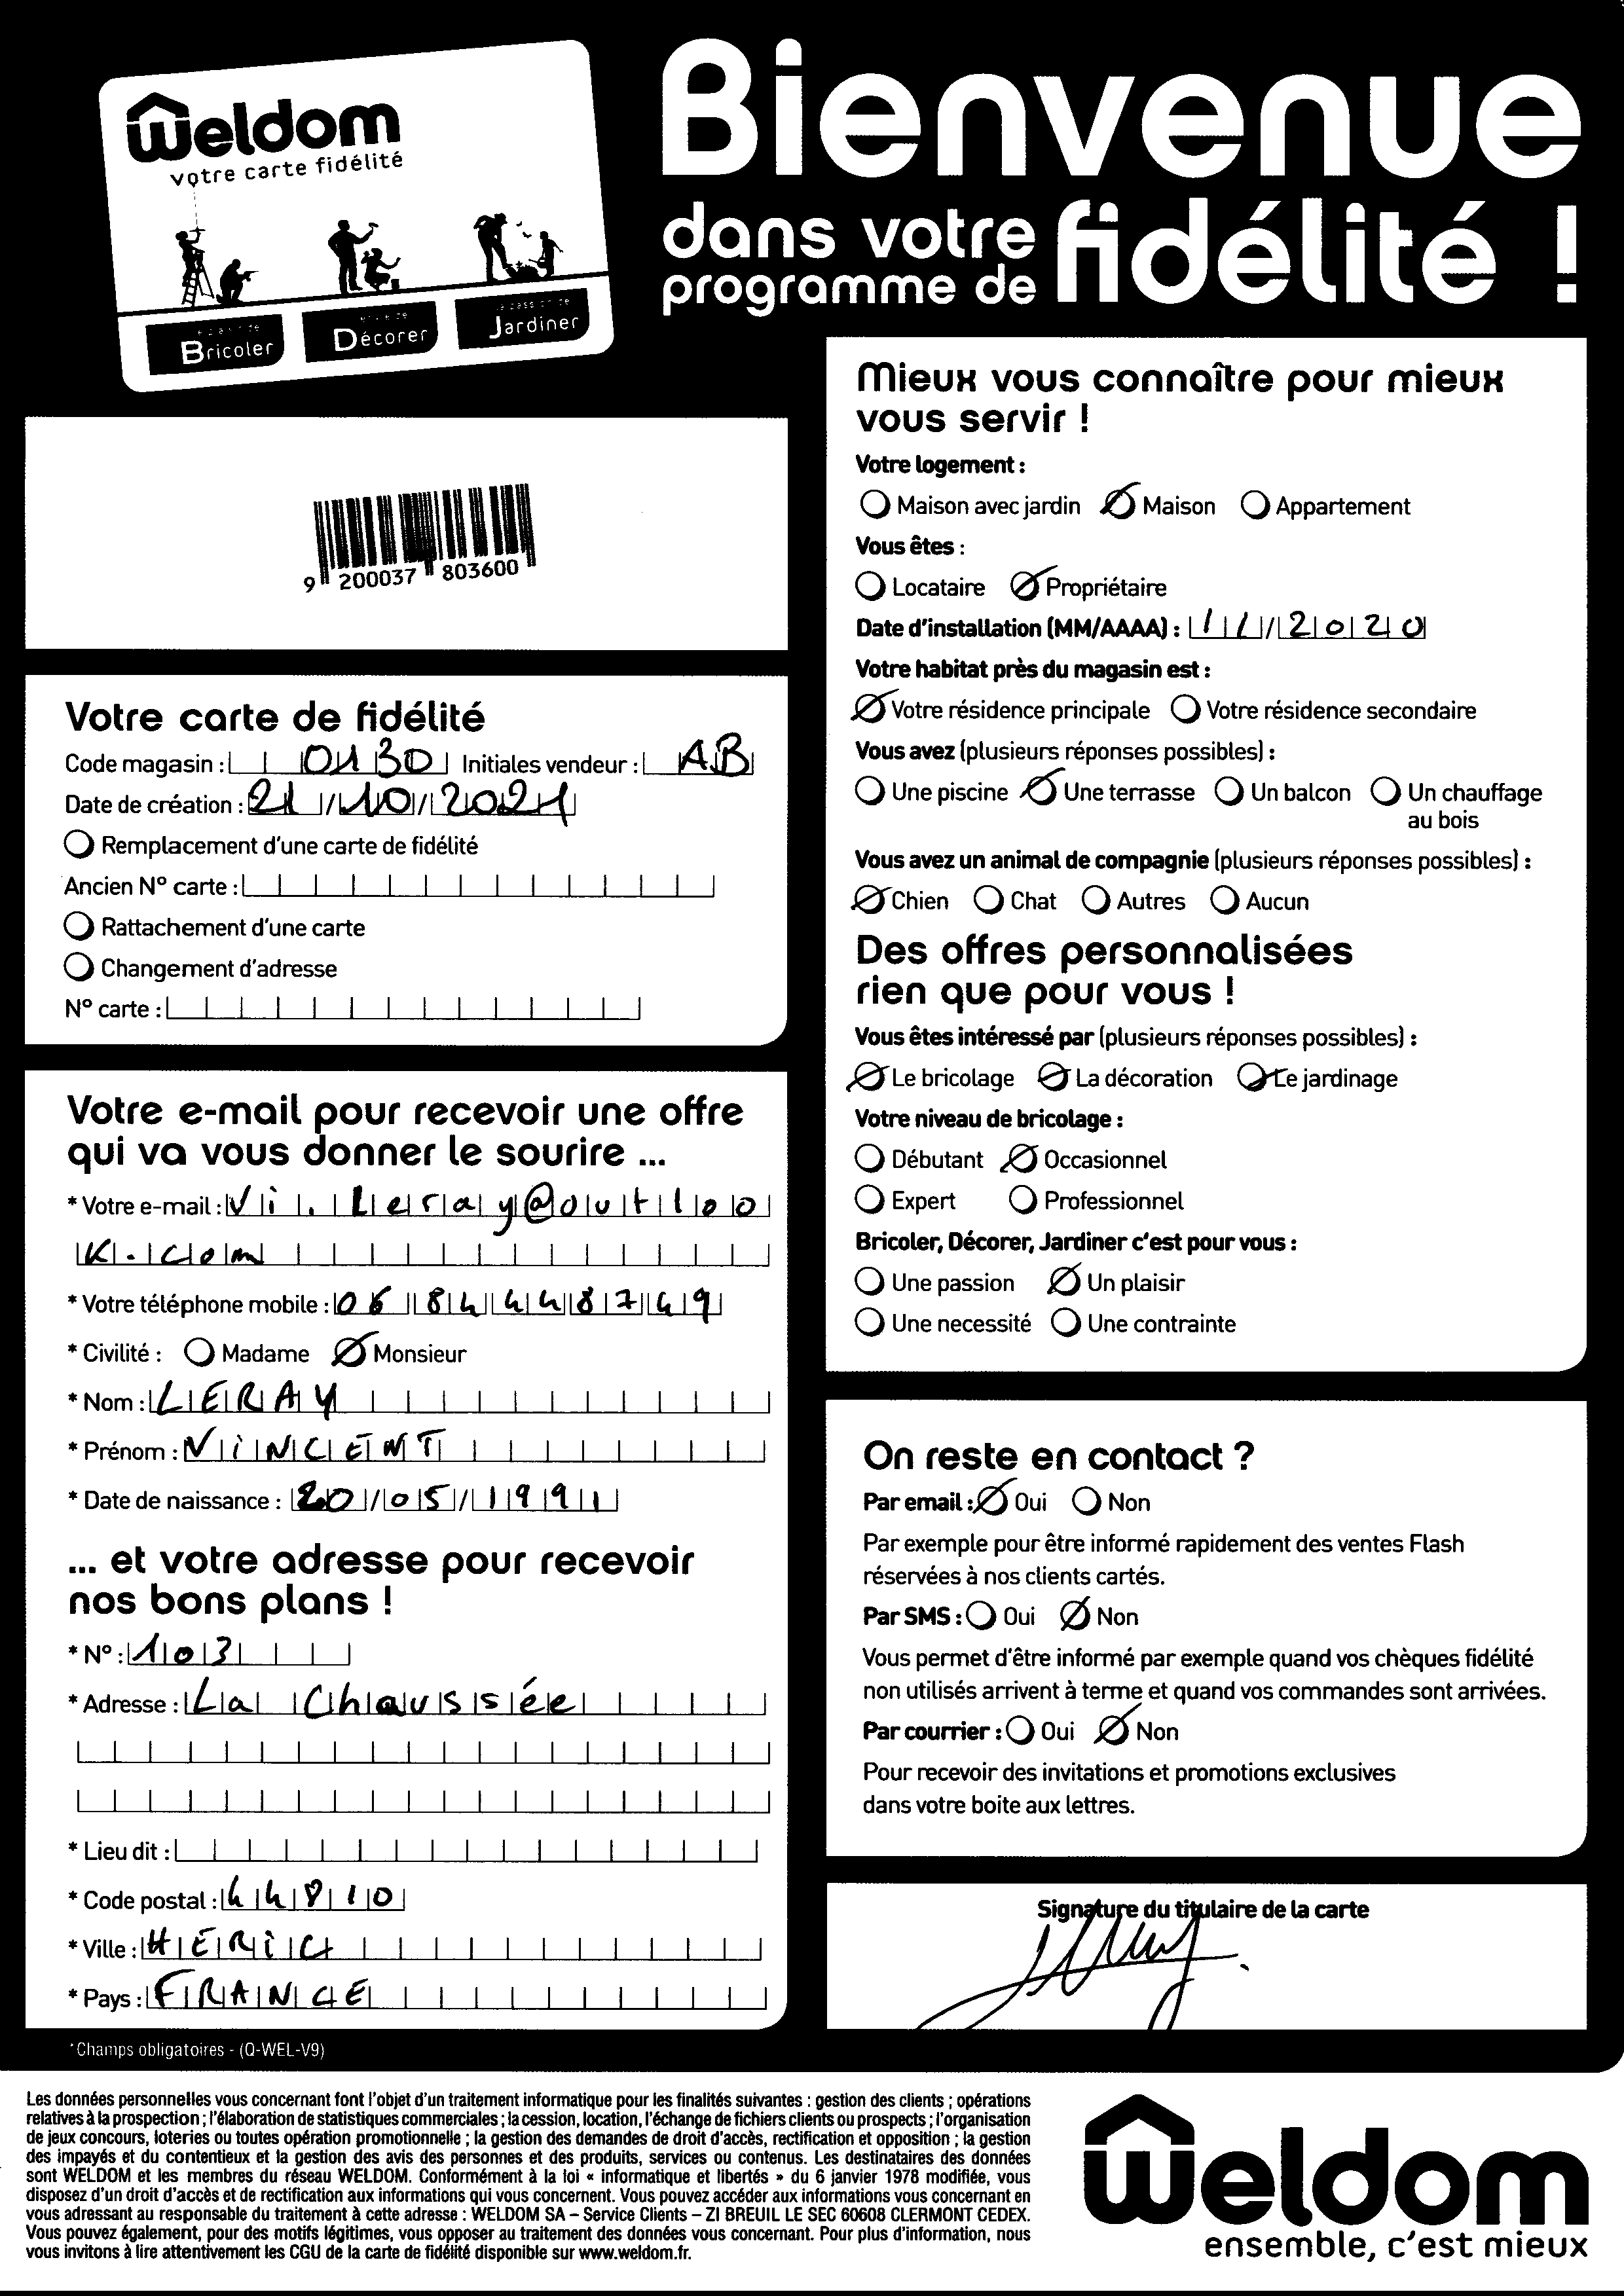 Weldom
votre carte fidélité
Bricoler
Décorer
Jardiner
Bienvenue
dans votre
programme de fidélité !
9 200037 803600
Votre carte de fidélité
Code magasin : 0130 Initiales vendeur : AB
Date de création : 21/10/2021
Remplacement d'une carte de fidélité
Ancien N° carte :
Rattachement d'une carte
Changement d'adresse
N° carte :
Votre e-mail pour recevoir une offre
qui va vous donner le sourire ...
* Votre e-mail : Vi.Leray@outloo
K.com
* Votre téléphone mobile : 06 84 44 87 49
* Civilité : Madame Monsieur
* Nom : LERAY
* Prénom : ViNCENT
* Date de naissance : 20/05/1991
... et votre adresse pour recevoir
nos bons plans !
* N° : 103
* Adresse : La Chaussée
* Lieu dit :
* Code postal : 44810
* Ville : HÉRiC
* Pays : FRANCE
*Champs obligatoires - (Q-WEL-V9)
Mieux vous connaître pour mieux
vous servir !
Votre logement :
Maison avec jardin Maison Appartement
Vous êtes :
Locataire Propriétaire
Date d'installation (MM/AAAA) : 11/2020
Votre habitat près du magasin est :
Votre résidence principale Votre résidence secondaire
Vous avez (plusieurs réponses possibles) :
Une piscine Une terrasse Un balcon Un chauffage
au bois
Vous avez un animal de compagnie (plusieurs réponses possibles) :
Chien Chat Autres Aucun
Des offres personnalisées
rien que pour vous !
Vous êtes intéressé par (plusieurs réponses possibles) :
Le bricolage La décoration Le jardinage
Votre niveau de bricolage :
Débutant Occasionnel
Expert Professionnel
Bricoler, Décorer, Jardiner c'est pour vous :
Une passion Un plaisir
Une necessité Une contrainte
On reste en contact ?
Par email : Oui Non
Par exemple pour être informé rapidement des ventes Flash
réservées à nos clients cartés.
Par SMS : Oui Non
Vous permet d'être informé par exemple quand vos chèques fidélité
non utilisés arrivent à terme et quand vos commandes sont arrivées.
Par courrier : Oui Non
Pour recevoir des invitations et promotions exclusives
dans votre boite aux lettres.
Signature du titulaire de la carte
Les données personnelles vous concernant font l'objet d'un traitement informatique pour les finalités suivantes : gestion des clients ; opérations
relatives à la prospection ; l'élaboration de statistiques commerciales ; la cession, location, l'échange de fichiers clients ou prospects ; l'organisation
de jeux concours, loteries ou toutes opération promotionnelle ; la gestion des demandes de droit d'accès, rectification et opposition ; la gestion
des impayés et du contentieux et la gestion des avis des personnes et des produits, services ou contenus. Les destinataires des données
sont WELDOM et les membres du réseau WELDOM. Conformément à la loi « informatique et libertés » du 6 janvier 1978 modifiée, vous
disposez d'un droit d'accès et de rectification aux informations qui vous concernent. Vous pouvez accéder aux informations vous concernant en
vous adressant au responsable du traitement à cette adresse : WELDOM SA – Service Clients – ZI BREUIL LE SEC 60608 CLERMONT CEDEX.
Vous pouvez également, pour des motifs légitimes, vous opposer au traitement des données vous concernant. Pour plus d'information, nous
vous invitons à lire attentivement les CGU de la carte de fidélité disponible sur www.weldom.fr.
Weldom
ensemble, c'est mieux